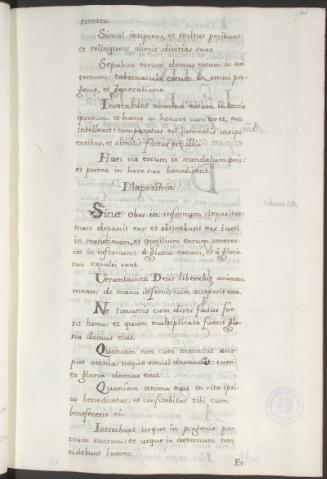 rientes.
Simul insipiens, et stultus peribunt:
et relinquent alienis divitias suas.
Sepulcra eorum domus eorum in æ-
ternum: tabernacula eorum in omni pro-
genie, et generatione.
Invocabunt nomina eorum in terris
ipsorum: et homo in honore cum esset, non
intellexit: comparatus est jumentis insipi-
entibus, et similis factus est illis.
Haec via eorum in scandalum ipsis:
et postea in hore suo benedicent.
Diapsalma
Sicut oves in infernum depositæ:
mors depascit eas: et obtinebunt eas justi
in matutinum, et auxilium eorum veteres-
cet in infernum: à gloria eorum, et à gloria
sua expulsi sunt.
Verumtamen Deus liberabit animam
meam de manu inferni, cum acceperit me.
Ne timueris cum dives factus fue-
rit homo: et quum multiplicata fuerit glo-
ria domus ejus.
Quoniam non cum morietur acci-
piet omnia: neque simul descendet cum
eo gloria domus ejus.
Quoniam anima ejus in vita ipsi-
us benedicetur: et confitebitur tibi cum
benefeceris ei.
Introibunt usque in progenie pa-
trum suorum: et usque in aeternum non
videbunt lumen.
Et